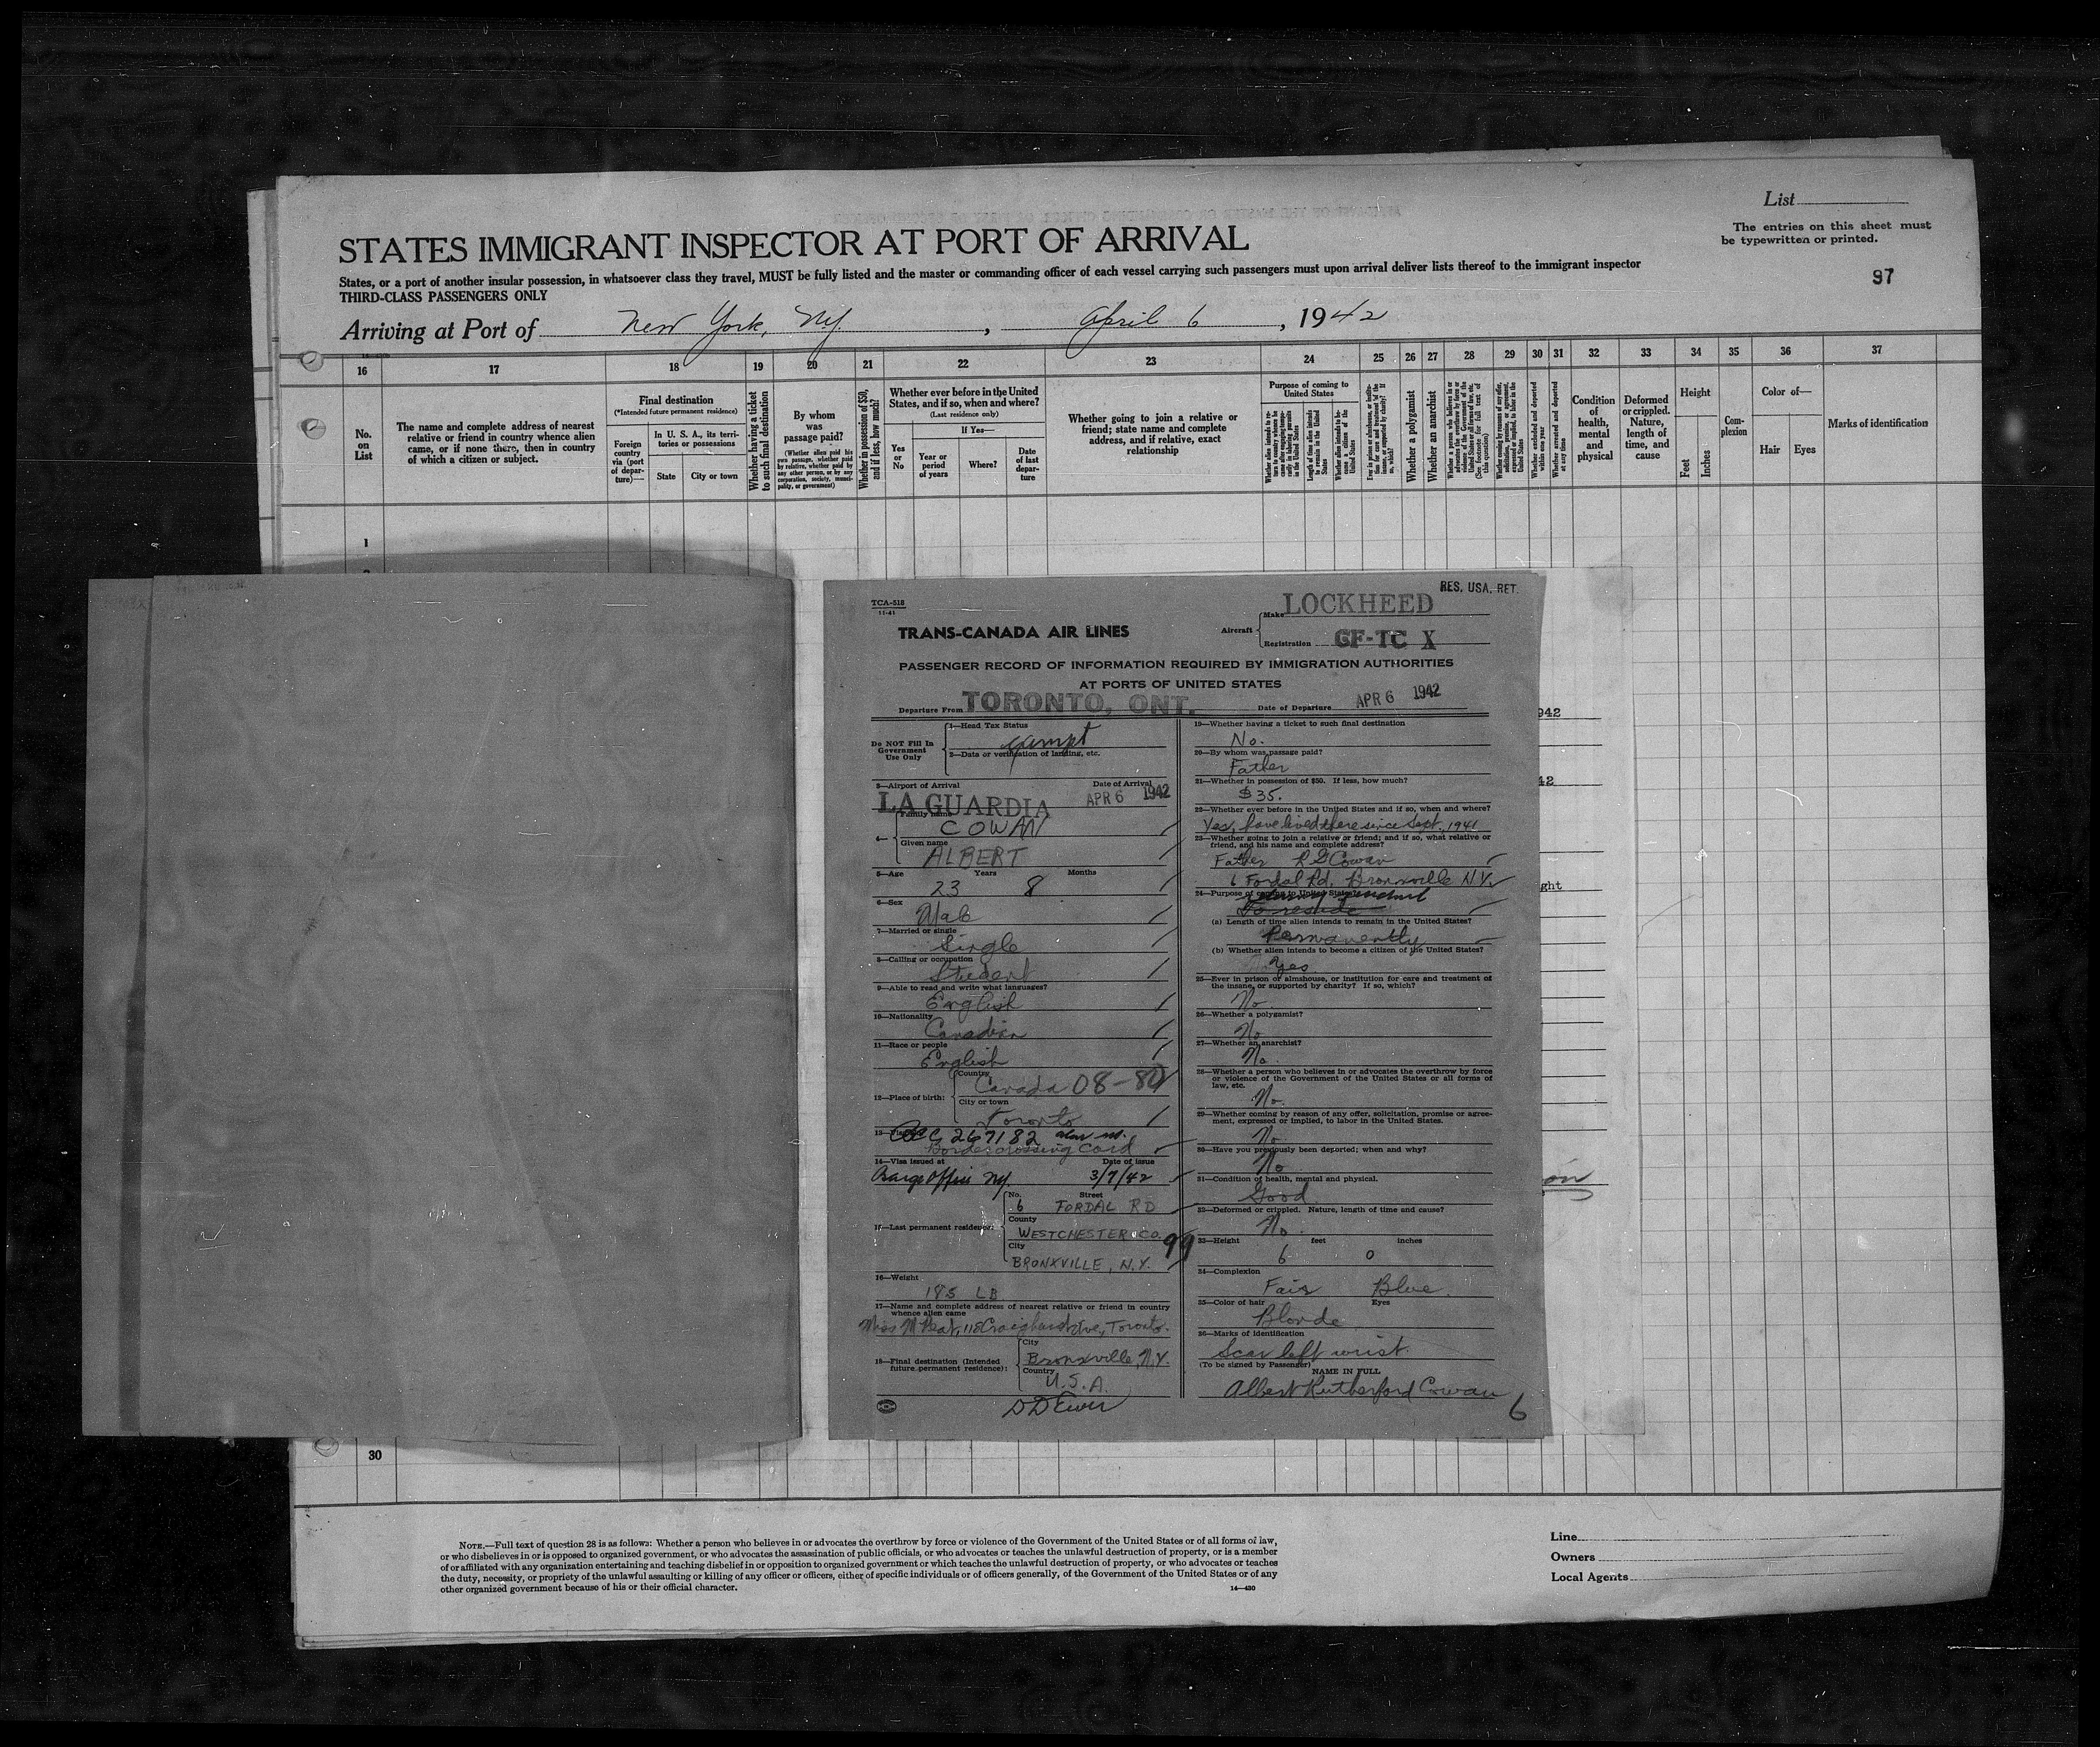 List
The entries on this sheet must
be typewritten or printed.
97
STATES IMMIGRANT INSPECTOR AT PORT OF ARRIVAL
States, or a port of another insular possession, in whatsoever class they travel, MUST be fully listed and the master or commanding officer of each vessel carrying such passengers must upon arrival deliver lists thereof to the immigrant inspector
THIRD-CLASS PASSENGERS ONLY
Arriving at Port of New York, NY. , April 6 , 1942
16 17 18 19 20 21 22 23 24 25 26 27 28 29 30 31 32 33 34 35 36 37
No. on List
The name and complete address of nearest
relative or friend in country whence alien
came, or if none there, then in country
of which a citizen or subject.
Final destination
(*Intended future permanent residence)
Foreign country via (port of departure)—
In U. S. A., its territories or possessions
State
City or town
Whether having a ticket to such final destination
By whom was passage paid?
(Whether alien paid his own passage, whether paid by relative, whether paid by any other person, or by any corporation, society, municipality, or government)
Whether in possession of $50, and if less, how much?
Whether ever before in the United
States, and if so, when and where?
(Last residence only)
Yes or No
If Yes—
Year or period of years
Where?
Date of last departure
Whether going to join a relative or
friend; state name and complete
address, and if relative, exact
relationship
Purpose of coming to United States
Length of time alien intends to remain in the United States
Whether alien intends to become a citizen of the United States
Whether a polygamist
Whether an anarchist
Whether excluded and deported within one year
Whether arrested and deported at any time
Condition of health, mental and physical
Deformed or crippled. Nature, length of time, and cause
Height
Feet
Inches
Complexion
Color of—
Hair
Eyes
Marks of identification
1
30
942
42
ght
on
TCA-518
11-41
RES. USA. RET.
TRANS-CANADA AIR LINES
Aircraft
Make LOCKHEED
Registration GF-TC X
PASSENGER RECORD OF INFORMATION REQUIRED BY IMMIGRATION AUTHORITIES
AT PORTS OF UNITED STATES
Departure From TORONTO, ONT.
Date of Departure APR 6 1942
Do NOT Fill In
Government
Use Only
1—Head Tax Status
exempt
2—Data or verification of landing, etc.
3—Airport of Arrival
Date of Arrival
LA GUARDIA APR 6 1942
4—
Family name
COWAN
Given name
ALBERT
5—Age Years Months
23 8
6—Sex
Male
7—Married or single
Single
8—Calling or occupation
Student
9—Able to read and write what languages?
English
10—Nationality
Canadian
11—Race or people
English
12—Place of birth:
Country
Canada 08-80
City or town
Toronto
13—
267182
Bordercrossing Card
14—Visa issued at
Date of issue
Barge Office NY. 3/7/42
15—Last permanent residence:
No. Street
6 FORDAL RD
County
WESTCHESTER CO. 99
City
BRONXVILLE, N.Y.
16—Weight
185 LB
17—Name and complete address of nearest relative or friend in country
whence alien came
Miss M Peat, 118 Craighurst Ave, Toronto.
18—Final destination (Intended
future permanent residence):
City
Bronxville, N.Y.
Country
U.S.A.
19—Whether having a ticket to such final destination
No.
20—By whom was passage paid?
Father
21—Whether in possession of $50. If less, how much?
$35.
22—Whether ever before in the United States and if so, when and where?
Yes, have lived there since Sept. 1941
23—Whether going to join a relative or friend; and if so, what relative or
friend, and his name and complete address?
Father R G Cowan
6 Fordal Rd. Bronxville N.Y.
24—Purpose of coming to United States?
Returning resident
To reside
(a) Length of time alien intends to remain in the United States?
Permanently
(b) Whether alien intends to become a citizen of the United States?
Yes
25—Ever in prison or almshouse, or institution for care and treatment of
the insane, or supported by charity? If so, which?
No
26—Whether a polygamist?
No
27—Whether an anarchist?
No
28—Whether a person who believes in or advocates the overthrow by force
or violence of the Government of the United States or all forms of
law, etc.
No.
29—Whether coming by reason of any offer, solicitation, promise or agree-
ment, expressed or implied, to labor in the United States.
No
30—Have you previously been deported; when and why?
No
31—Condition of health, mental and physical.
Good
32—Deformed or crippled. Nature, length of time and cause?
No
33—Height feet inches
6 0
34—Complexion
Fair Blue
35—Color of hair Eyes
Blonde
36—Marks of identification
Scar left wrist.
(To be signed by Passenger)
NAME IN FULL
Albert Rutherford Cowan
6
NOTE.—Full text of question 28 is as follows: Whether a person who believes in or advocates the overthrow by force or violence of the Government of the United States or of all forms of law,
or who disbelieves in or is opposed to organized government, or who advocates the assassination of public officials, or who advocates or teaches the unlawful destruction of property, or is a member
of or affiliated with any organization entertaining and teaching disbelief in or opposition to organized government or which teaches the unlawful destruction of property, or who advocates or teaches
the duty, necessity, or propriety of the unlawful assaulting or killing of any officer or officers, either of specific individuals or of officers generally, of the Government of the United States or of any
other organized government because of his or their official character.
14—430
Line
Owners
Local Agents